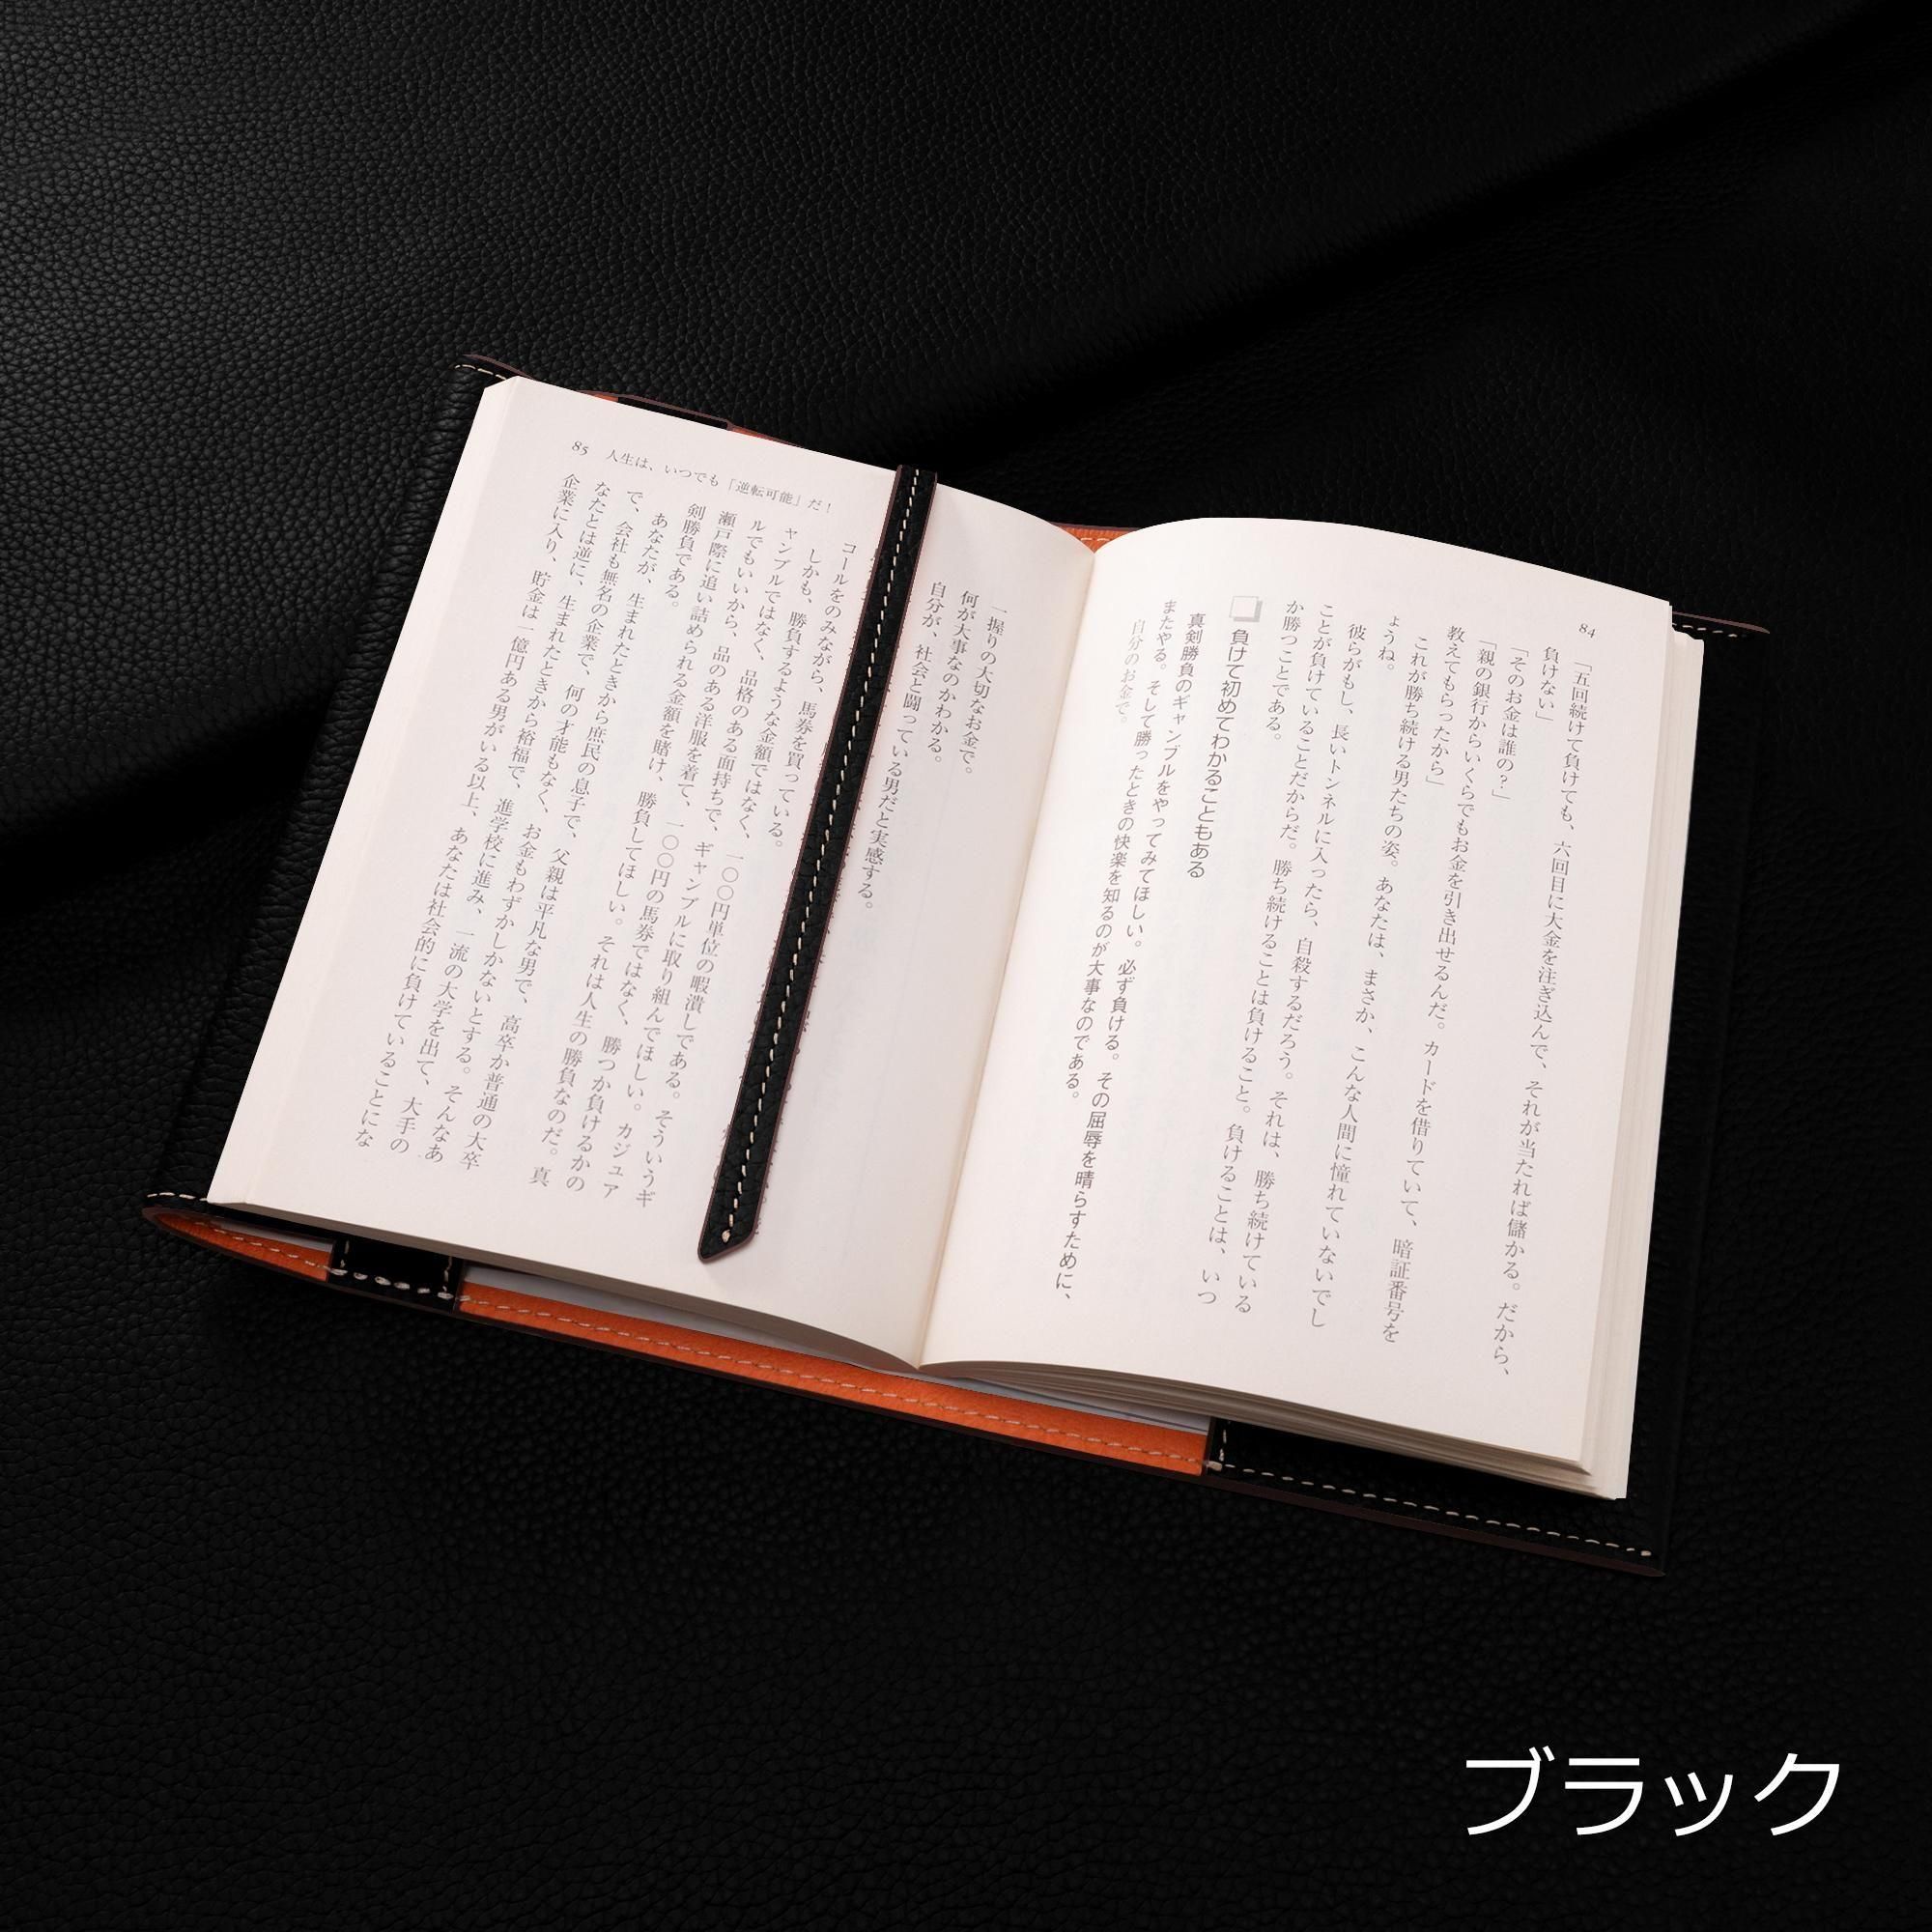 84
「五回続けて負けても、六回目に大金を注ぎ込んで、それが当たれば儲かる。だから、
負けない」
「そのお金は誰の？」
「親の銀行からいくらでもお金を引き出せるんだ。カードを借りていて、暗証番号を
教えてもらったから」
これが勝ち続ける男たちの姿。あなたは、まさか、こんな人間に憧れていないでし
ょうね。
彼らがもし、長いトンネルに入ったら、自殺するだろう。それは、勝ち続けている
ことが負けていることだからだ。勝ち続けることは負けること。負けることは、いつ
か勝つことである。
負けて初めてわかることもある
真剣勝負のギャンブルをやってみてほしい。必ず負ける。その屈辱を晴らすために、
またやる。そして勝ったときの快楽を知るのが大事なのである。
自分のお金で。
85 人生は、いつでも「逆転可能」だ！
一握りの大切なお金で。
何が大事なのかわかる。
自分が、社会と闘っている男だと実感する。
コールをのみながら、馬券を買っている。
しかも、勝負するような金額ではなく、一〇〇円単位の暇潰しである。そういうギ
ャンブルではなく、品格のある面持ちで、ギャンブルに取り組んでほしい。カジュア
ルでもいいから、品のある洋服を着て、一〇〇円の馬券ではなく、勝つか負けるかの
瀬戸際に追い詰められる金額を賭け、勝負してほしい。それは人生の勝負なのだ。真
剣勝負である。
あなたが、生まれたときから庶民の息子で、父親は平凡な男で、高卒か普通の大卒
で、会社も無名の企業で、何の才能もなく、お金もわずかしかないとする。そんなあ
なたとは逆に、生まれたときから裕福で、進学校に進み、一流の大学を出て、大手の
企業に入り、貯金は一億円ある男がいる以上、あなたは社会的に負けていることにな
ブラック